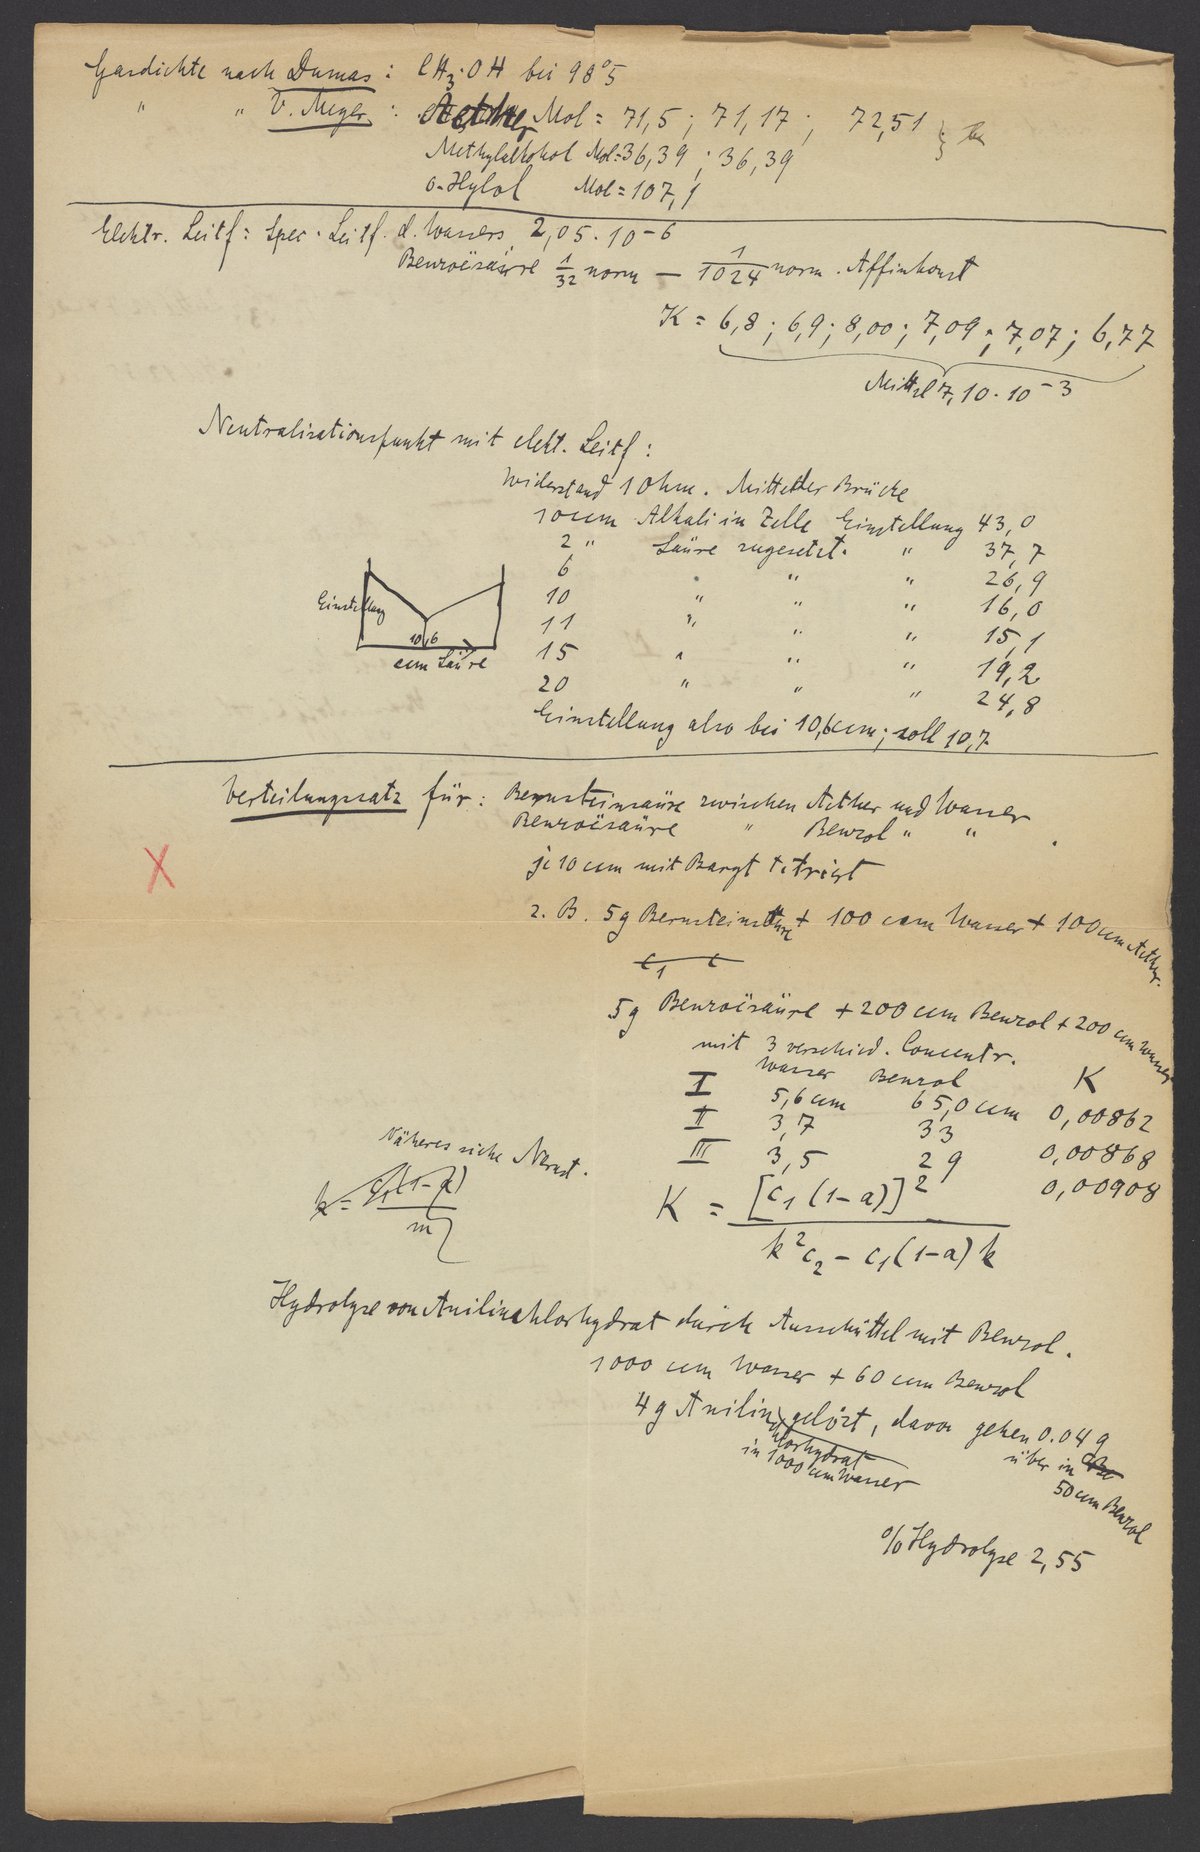 Gasdichte nach Dumas: CH3·OH bei 98°5
" " V. Meyer: Aether Mol = 71,5; 71,17; 72,51
Methylalkohol Mol = 36,39; 36,39
o-Xylol Mol = 107,1
Elektr. Leitf: Spec. Leitf. d. Wassers 2,05·10-6
Benzoësäure 1/32 norm — 1/1024 norm. Affinkonst
K = 6,8; 6,9; 8,00; 7,09; 7,07; 6,77
Mittel 7,10·10-3
Neutralisationspunkt mit elekt. Leitf:
Widerstand 1 Ohm. Mittel der Brücke
10 ccm Alkali in Zelle Einstellung 43,0
2 " Säure zugesetzt. " 37,7
6 " " " 26,9
10 " " " 16,0
11 " " " 15,1
15 " " " 19,2
20 " " " 24,8
Einstellung
10,6
ccm Säure
Einstellung also bei 10,6 ccm; soll 10,7
Verteilungssatz für: Bernsteinsäure zwischen Aether und Wasser
Benzoësäure " Benzol " "
X
je 10 ccm mit Baryt titriert
z. B. 5g Bernsteinsäure + 100 ccm Wasser + 100 ccm Aether.
c1 c
5g Benzoësäure + 200 ccm Benzol + 200 ccm Wasser
mit 3 verschied. Concentr.
Wasser Benzol K
I 5,6 ccm 65,0 ccm 0,00862
II 3,7 33 0,00868
III 3,5 29 0,00908
Näheres siehe Nernst.
k = c1(1-a) / m
K = [c1(1-a)]2 / k2c2 - c1(1-a)k
Hydrolyse von Anilinchlorhydrat durch Ausschüttel mit Benzol.
1000 ccm Wasser + 60 ccm Benzol
4g Anilinchlorhydrat gelöst, davon gehen 0.04g
in 1000 ccm Wasser
über in
50 ccm Benzol
% Hydrolyse 2,55